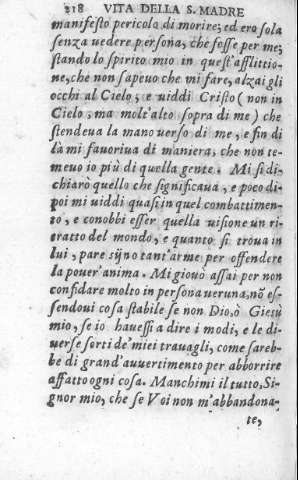 218 VITA DELLA S. MADRE
manifesto pericolo di morire; ed ero sola
senza uedere persona, che fosse per me;
stando lo spirito mio in quest'afflittio-
ne, che non sapeuo che mi fare, alzai gli
occhi al Cielo, e uiddi Cristo (non in
Cielo, ma molt'alto sopra di me) che
stendeua la mano uerso di me, e fin di
là mi fauoriua di maniera, che non te-
meuo io più di quella gente. Mi si di-
chiarò quello che significaua, e poco di-
poi mi uiddi quasi in quel combattimen-
to, e conobbi esser quella uisione un ri-
tratto del mondo, e quanto si troua in
lui, pare sijno tant'arme per offendere
la pouer'anima. Mi giouò assai per non
confidare molto in persona ueruna, nõ es-
sendoui cosa stabile se non Dio, ò Giesù
mio, se io hauessi a dire i modi, e le di-
uerse sorti de' miei trauagli, come sareb-
be di grand'auuertimento per abborrire
affatto ogni cosa. Manchimi il tutto, Si-
gnor mio, che se Voi non m'abbandona-
te,